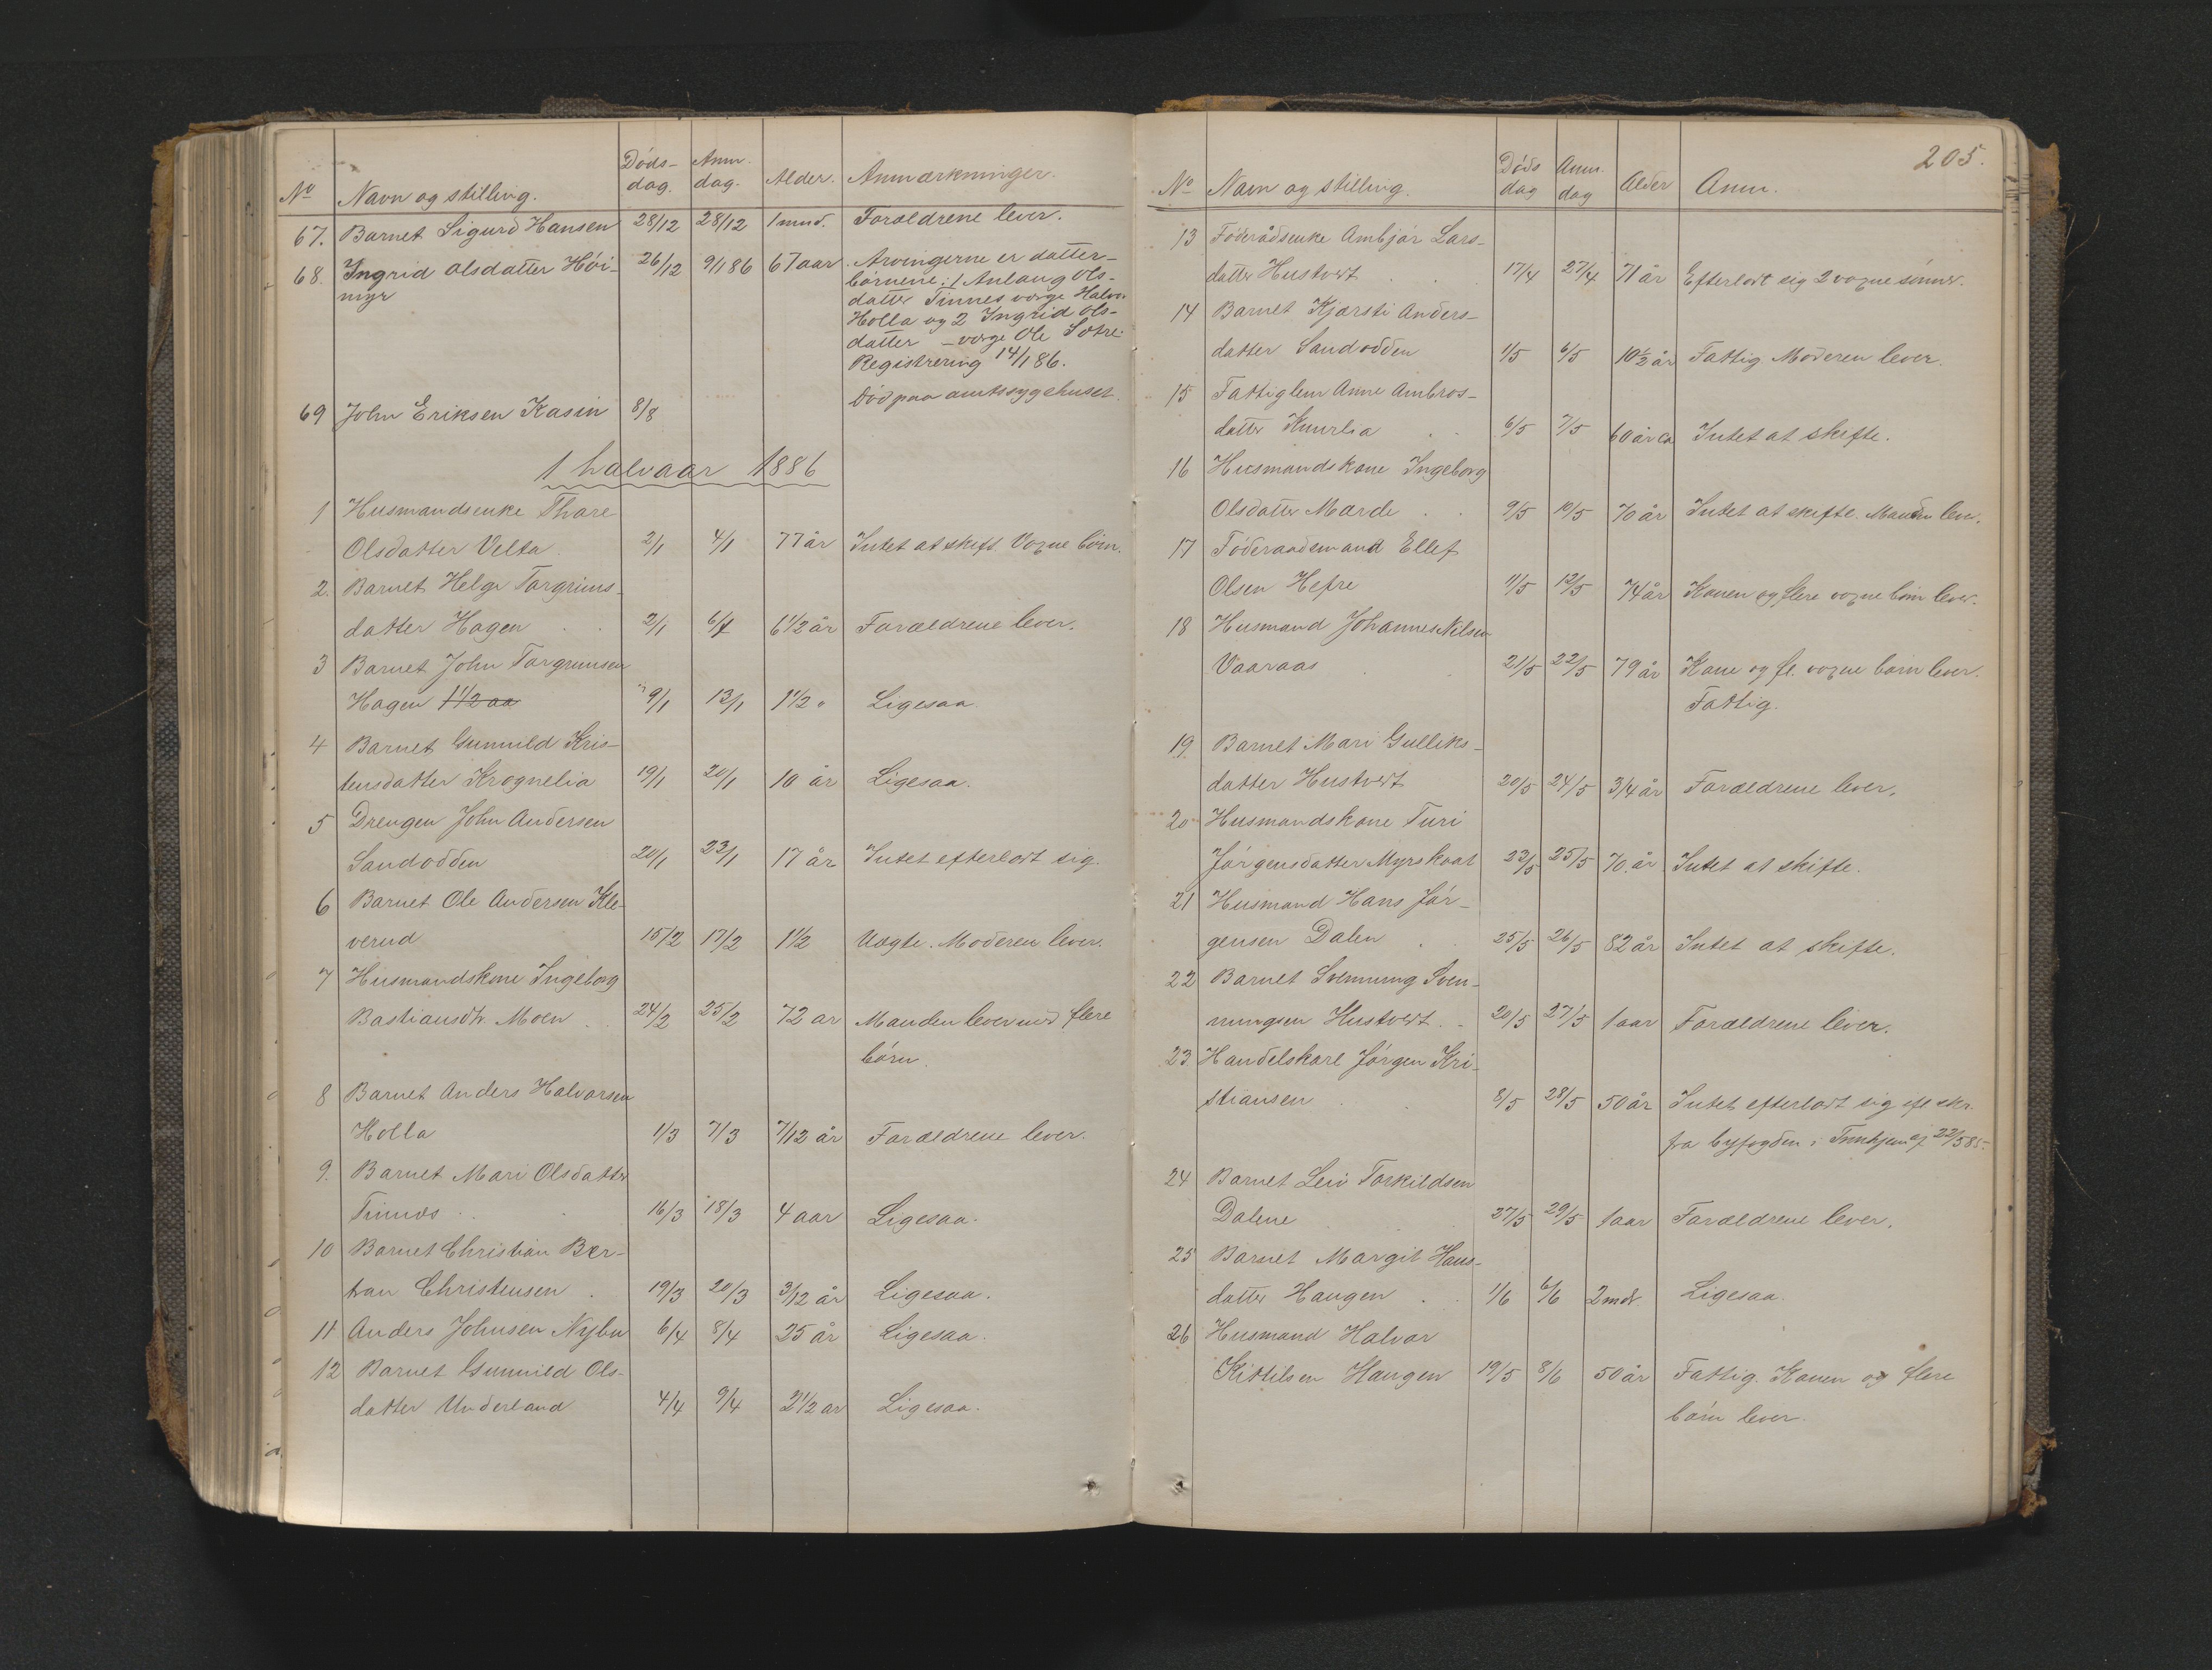 Nº Navn og stilling. Døds-dag. Anm. dag. Alder. Anmærkninger.
67. Barnet Sigurd Hansen 28/12 28/12 1 mnd. Forældrene lever.
68. Ingrid Olsdatter Høi- 26/12 9/1 86 67 aar Arvingerne er datter-
myr børnene: 1 Anlaug Ols-
datter Tinnes værge Halvor
Holla og 2 Ingrid Ols-
datter – værge Ole Sotre
Registrering 14/1 86.
69 John Eriksen Kasin 8/8 Død paa amtssygehuset.
1 halvaar 1886
1 Husmandsenke Thore
Olsdatter Velta 2/1 4/1 77 år Intet at skift. Voxne børn.
2. Barnet Helge Torgrims-
datter Hagen 2/1 6/1 6 1/2 år Forældrene lever.
3 Barnet John Torgrimsen
Hagen 1 1/2 aa 9/1 13/1 1 1/2 " Ligesaa
4 Barnet Gunnild Kris-
tensdatter Krognelia 19/1 20/1 10 år Ligesaa.
5 Drengen John Andersen
Sandodden 20/1 23/1 17 år Intet efterladt sig.
6 Barnet Ole Andersen Kle-
verud 15/2 17/2 1 1/2 Uægte. Moderen lever.
7 Husmandskone Ingeborg
Bastiansdtr. Moen 24/2 25/2 72 ar Manden lever med flere
børn.
8 Barnet Anders Halvorsen
Holla 1/3 7/3 7/12 år Forældrene lever.
9. Barnet Mari Olsdatter
Tinnes 16/3 18/3 4 aar Ligesaa.
10 Barnet Christian Ber-
tran Christensen 19/3 20/3 3/12 år Ligesaa.
11 Anders Johnsen Nybu 6/4 8/4 25 år Ligesaa.
12 Barnet Gunnild Ols-
datter Underland 4/4 9/4 2 1/2 ar Ligesaa.
205.
Nº Navn og stilling. Døds dag Anm. dag Alder Anm.
13 Føderådsenke Ambjør Lars-
datter Hustvet 17/4 27/4 71 år Efterladt sig 2 voxne sønner.
14 Barnet Kjærsti Anders-
datter Sandodden 1/5 6/5 10 1/2 år Fattig Moderen lever.
15 Fattiglem Anne Ambros-
datter Knurlia 6/5 7/5 60 år ca Intet at skifte.
16 Husmandskone Ingeborg
Olsdatter Marde 9/5 10/5 70 år Intet at skifte. Manden lev.
17 Føderaadsmand Ellef
Olsen Hefre 7/5 12/5 74 år Konen og flere voxne børn lever.
18 Husmand Johannes Nilsen
Vaaraas 21/5 22/5 79 år Kone og fl. voxne børn lever.
Fattig.
19. Barnet Mari Gulliks-
datter Hustvedt 20/5 24/5 3/4 år Forældrene lever.
20 Husmandskone Turi
Jørgensdatter Myrskaat 23/5 25/5 70. år Intet at skifte.
21 Husmand Hans Jør-
gensen Dalen 25/5 26/5 82 år Intet at skifte.
22 Barnet Svennung Sven-
nungsen Hustvedt 20/5 27/5 1 aar Forældrene lever.
23 Handelskarl Jørgen Kri-
stiansen 8/5 28/5 50 år Intet efterladt sig efl. skr.
fra byfogden i Trnhjem af 22/5 85.
24 Barnet Leiv Torkildsen
Dalene 27/5 29/5 1 aar Forældrene lever.
25 Barnet Margit Hans-
datter Haugen 1/6 6/6 2 mdr. Ligesaa.
26 Husmand Halvor
Kittilsen Haugen 19/5 8/6 50 år Fattig. Konen og flere
børn lever.